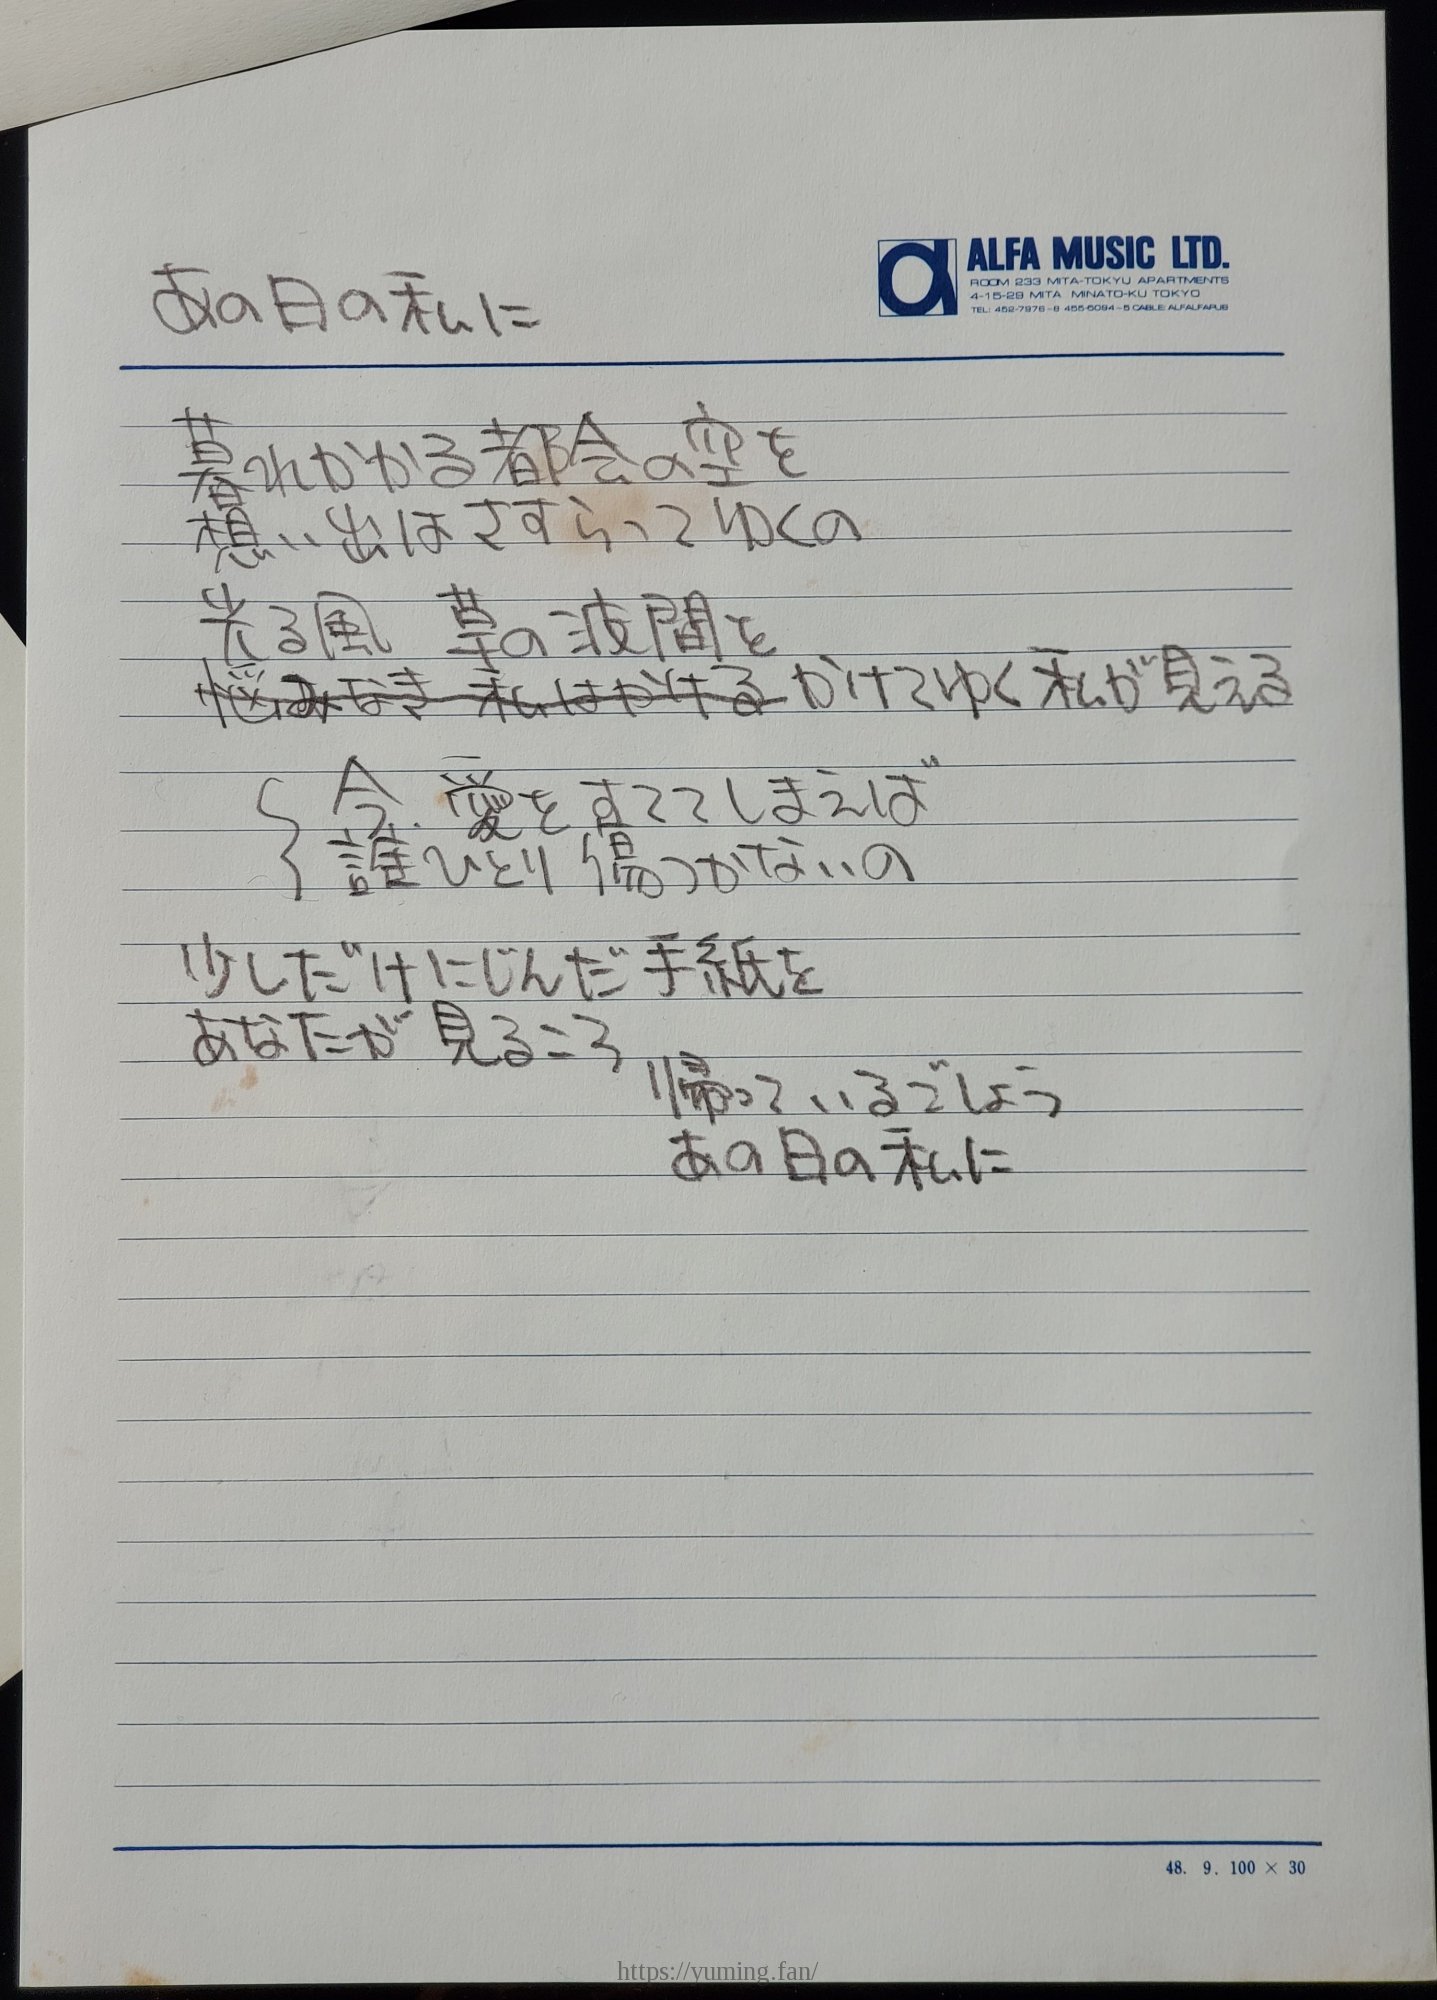 あの日の私に
ALFA MUSIC LTD.
ROOM 233 MITA-TOKYU APARTMENTS
4-15-29 MITA MINATO-KU TOKYO
TEL: 452-7976~8 455-5094~5 CABLE: ALFALFAPUB
暮れかかる都会の空を
想い出はさすらってゆくの
光る風 草の波間を
悩みなき 私はかける かけてゆく私が見える
今 愛をすててしまえば
誰ひとり傷つかないの
少しだけにじんだ手紙を
あなたが見るころ
帰っているでしょう
あの日の私に
48. 9. 100 × 30
https://yuming.fan/